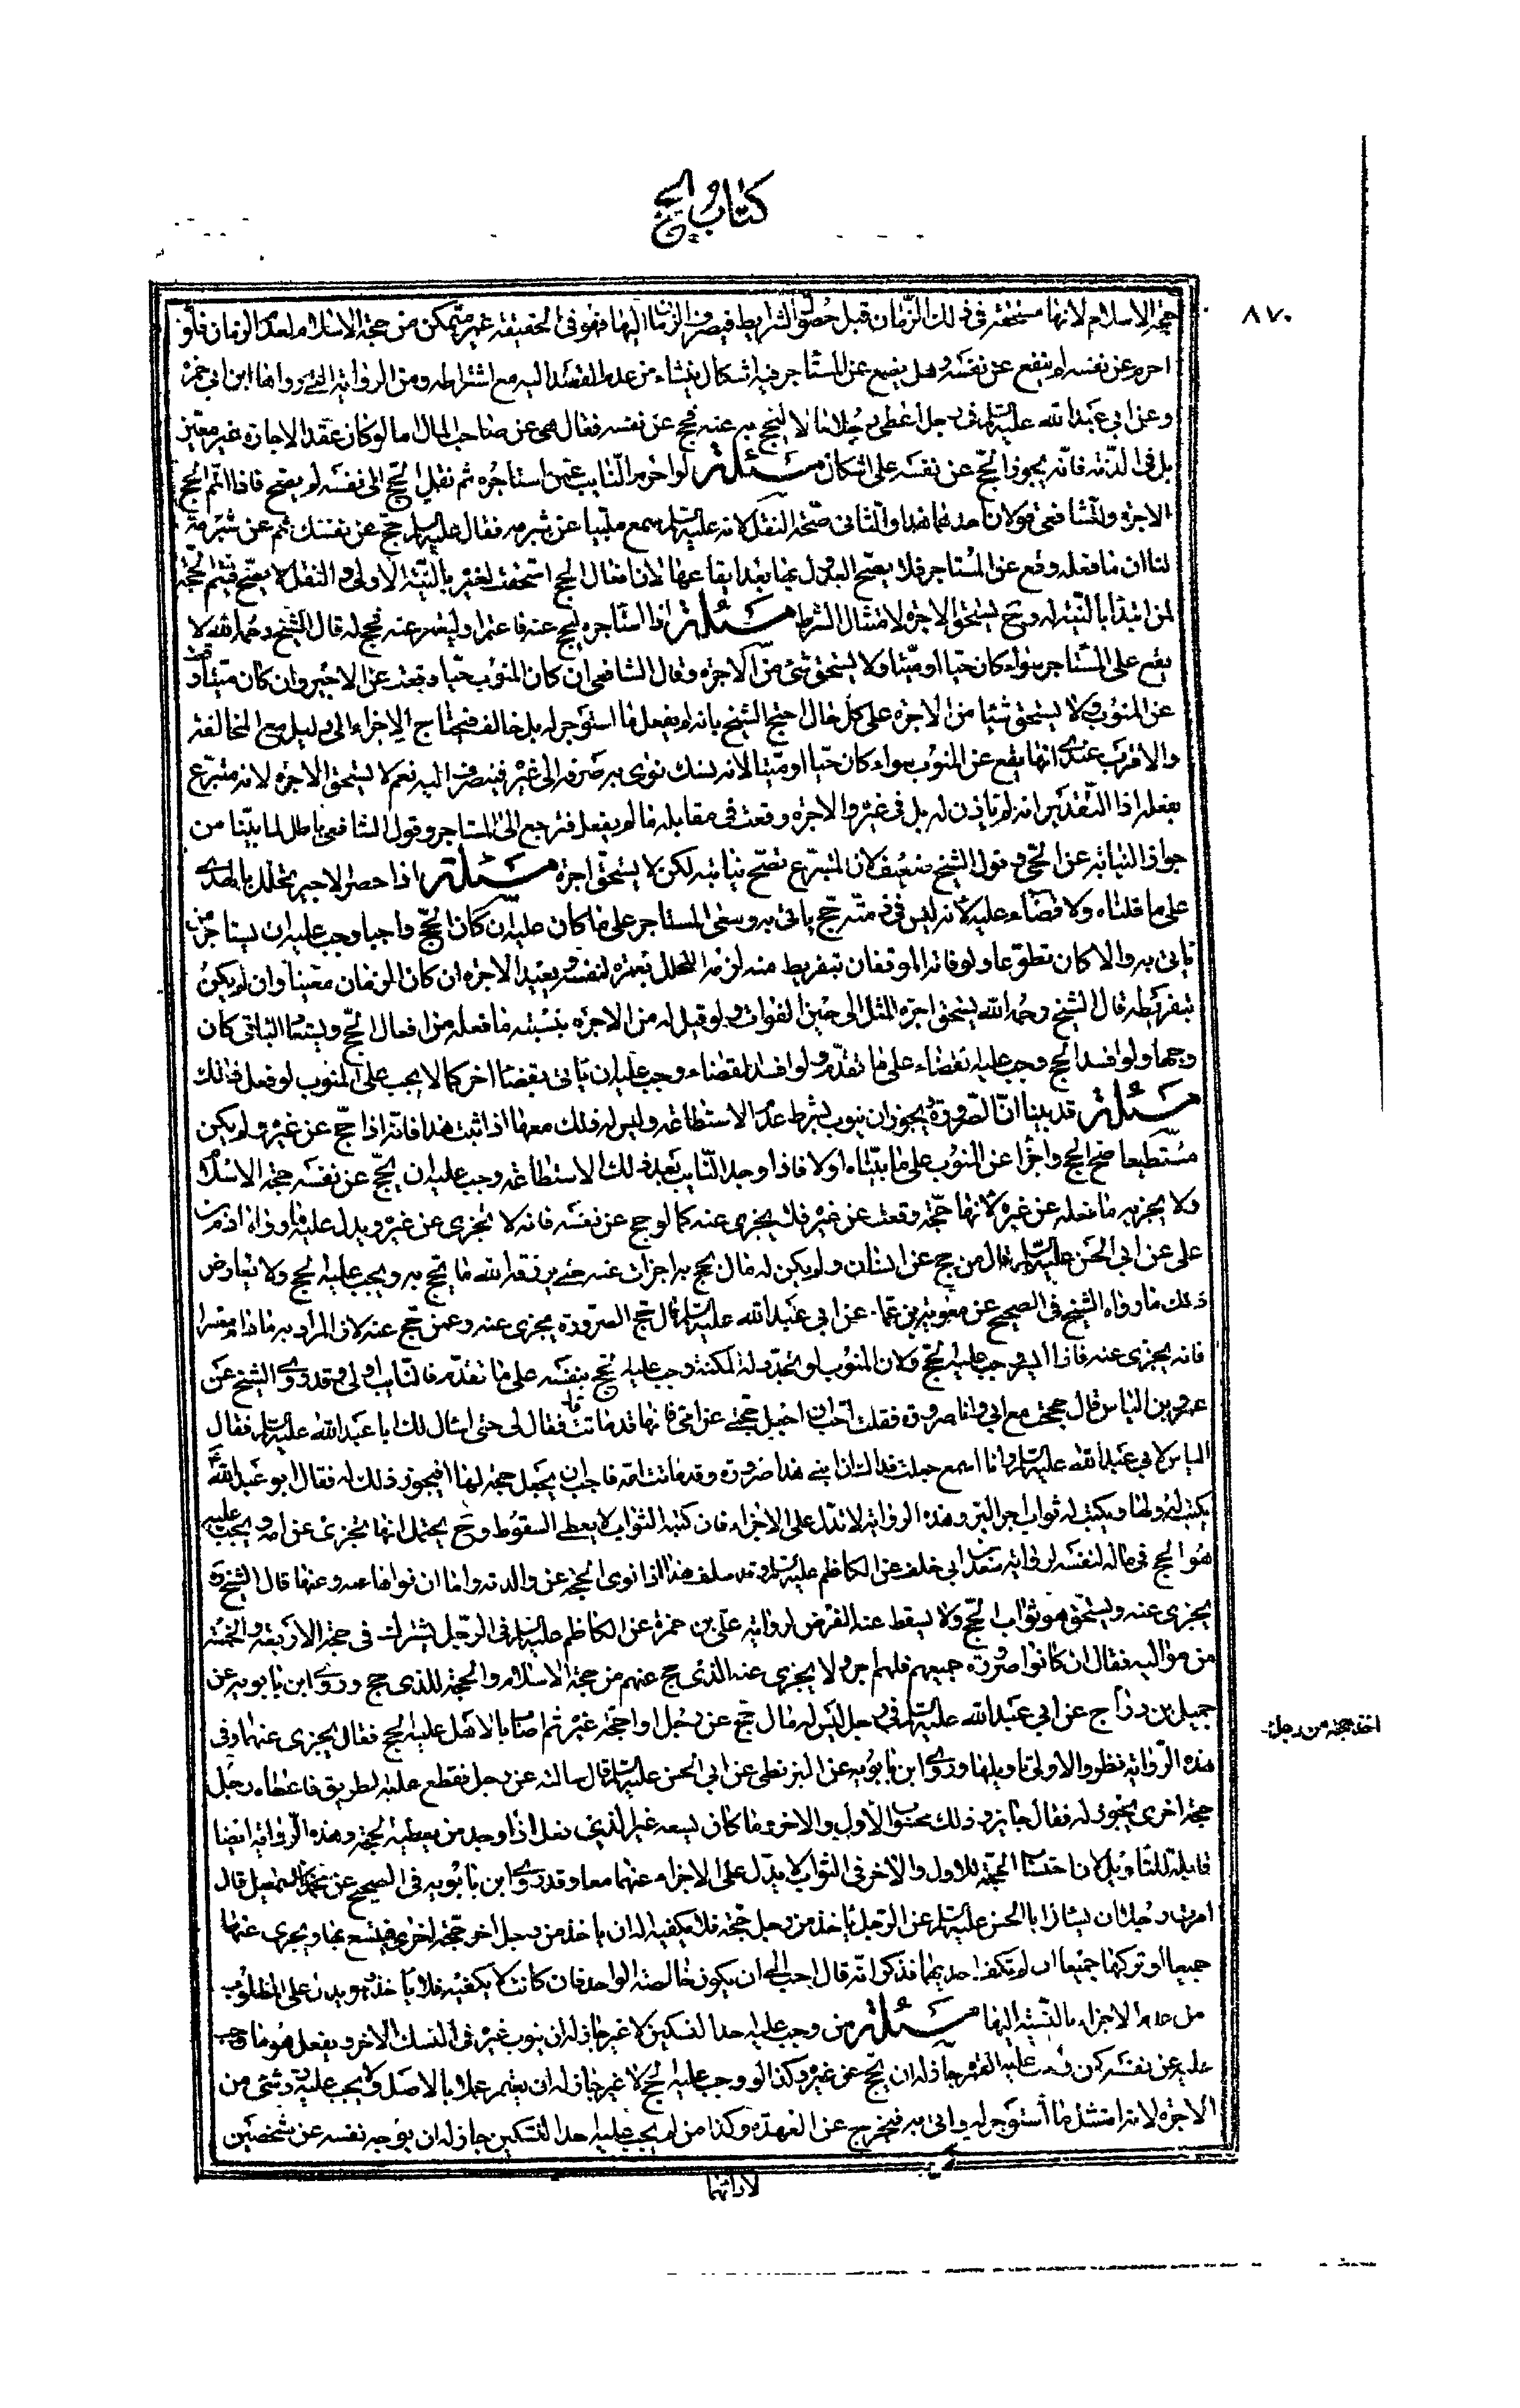 كتاب الحج
٨٧٠
حجة الاسلام لانها مستحقة فى ذلك الزمان قبل حصول الشرايط فيصرف الزمان اليها فهو فى الحقيقة غير متمكن من حجة الاسلام لعدم الزمان فلو
احرم عن نفسه لم يقع عن نفسه وهل يقع عن المستأجر فيه اشكال ينشاء من عدم القصد اليه مع اشتراطه ومن الرواية التى رواها ابن ابى حمزة
وعن ابى عبد الله عليه السلم فى رجل اعطى رجلا مالا ليحج به عنه فحج عن نفسه فقال هى عن صاحب المال اما لو كان عقد الاجارة غير معين
بل فى الذمة فانه يجوز الحج عن نفسه على اشكال مسئلة لو احرم النايب عمن استاجره ثم نقل الحج الى نفسه لم يصح فاذا اتم الحج
الاجرة وللشافعى قولان احدهما هذا والثانى صحة النقل لانه عليه السلم سمع ملبيا عن شبرمه فقال عليه السلم حج عن نفسك ثم عن شبرمة
لنا ان ما فعله وقع عن المستاجر فلا يصح العدول بها بعد ايقاعها لان افعال الحج استحقت لغيره بالنية الاولى والنقل لا يصح فتتم الحجة
لمن ابتدأ بالنية له وح يستحق الاجرة لامتثال الشرط مسئلة اذا استاجره ليحج عنه فاعتمر او ليعتمر عنه فحج له قال الشيخ رحمه الله لا
يقع على المستاجر سواء كان حيا او ميتا ولا يستحق شئ من الاجرة وقال الشافعى ان كان المنوب حيا وقعت عن الاجير وان كان ميتا وقعت
عن المنوب ولا يستحق شيئا من الاجرة على كل حال احتج الشيخ بانه لم يفعل ما استؤجر له بل خالف فيحتاج الاجزاء الى دليل مع المخالفة
والاقرب عندى انها يقع عن المنوب سواء كان حيا او ميتا لانه نسك نوى به صرفه الى غيره فينصرف اليه نعم لا يستحق الاجرة لانه متبرع
بفعله اذا التقدير انه لم ياذن له بل فى غيره والاجرة وقعت فى مقابله ما لم يفعل فترجع الى المستاجر وقول الشافعى باطل لما بينا من
جواز النيابة عن الحى وقول الشيخ ضعيف لان المتبرع تصح نيابته لكن لا يستحق اجرة مسئلة اذا حصر الاجير تحلل بالهدى
على ما قلناه ولا قضاء عليه لانه ليس فى ذمته حج ياتى به وبقى المستاجر على ما كان عليه ان كان الحج واجبا وجب عليه ان يستاجر من
ياتى به والا كان تطوعا ولو فاته الموقفان بتفريط منه لزمه التحلل بعمرة لنفسه ويعيد الاجرة ان كان الزمان معينا وان لم يكن
بتفريطه قال الشيخ رحمه الله يستحق اجرة المثل الى حين الفوات ولو قيل له من الاجرة بنسبة ما فعله من افعال الحج ويستعاد الباقى كان
وجها ولو افسد الحج وجب عليه القضاء على ما تقدم ولو افسد القضاء وجب عليه ان ياتى بقضاء اخر كما لا يجب على المنوب لو فعل ذلك
مسئلة قد بينا ان الصرورة يجوز ان ينوب بشرط عدم الاستطاعة وليس له فلك معها اذا ثبت هذا فانه اذا حج عن غيره ولم يكن
مستطيعا صح الحج واجزا عن المنوب على ما بيناه اولا فاذا وجد النايب بعد ذلك الاستطاعة وجب عليه ان يحج عن نفسه حجة الاسلام
ولا يجزيه ما فعله عن غيره لانها حجة وقعت عن غيره فلا يجزى عنه كما لو حج عن نفسه فانه لا تجزى عن غيره ويدل عليه ما رواه ادم بن
على عن ابى الحسن عليه السلم قال من حج عن انسان ولم يكن له مال يحج به اجزات عنه حتى يرزقه الله ما يحج به ويجب عليه الحج ولا يعارض
ذلك ما رواه الشيخ فى الصحيح عن معوية بن عمار عن ابى عبد الله عليه السلم قال حج الصرورة يجزى عنه وعمن حج عنه لان المراد به ما دام معسرا
فانه يجزى عنه فاذا ايسر وجب عليه الحج ولان المنوب لو تجدد له المكنة وجب عليه الحج بنفسه على ما تقدم فالنايب اولى وقد روى الشيخ عن
عمرو بن الياس قال حججت مع ابى وانا صرورة فقلت احب ان اجعل حجتى عن امى فانها قد ماتت قال فقال لى حتى اسال لك ابا عبد الله عليه السلم فقال
الياس لابى عبد الله عليه السلم وانا اسمع جعلت فداك ان ابنى هذا صرورة وقد ماتت امه فاحب ان يجعل حجته لها افيجوز ذلك له فقال ابو عبد الله ع
يكتب له ولها ويكتب له ثواب اجر البر وهذه الرواية لا تدل على الاجزاء فان كتبه الثواب لا يعطى السقوط وح يحتمل انها تجزى عن امه ويجب عليه
هو الحج فى ماله لنفسه لرواية سعد بن ابى خلف عن الكاظم عليه السلم وقد سلف هذا اذا نوى الحجة عن والدته واما ان نواها عنه وعنها قال الشيخ ره
يجزى عنه ويستحق هو ثواب الحج ولا يسقط عنه الفرض لرواية على بن حمزة عن الكاظم عليه السلم فى الرجل يشرك فى حجته الاربعة والخمسة
من مواليه فقال ان كانوا صرورة جميعهم فلهم اجر ولا يجزى عنه الذى حج عنهم من حجة الاسلام والحجة للذى حج وروى ابن بابويه عن
جميل بن دراج عن ابى عبد الله عليه السلم فى رجل ليس له مال حج عن رجل او احجه غيره ثم اصاب مالا هل عليه الحج فقال يجزى عنهما وفى
هذه الرواية نظر والاولى تاويلها وروى ابن بابويه عن البزنطى عن ابى الحسن عليه السلم قال سالته عن رجل فقطع عليه الطريق فاعطاه رجل
اخذ حجة من رجل
حجة اخرى يجوز له فقال جايز وذلك محسوب للاول والاخر وما كان يسعه غير الذى فعل اذا وجد من يعطيه الحجة وهذه الرواية ايضا
قابلة للتاويل لان احتساب الحجة للاول والاخر فى الثواب لا يدل على الاجزاء عنهما معا وقد روى ابن بابويه فى الصحيح عن محمد بن اسمعيل قال
امرت رجلا ان يسال ابا الحسن عليه السلم عن الرجل ياخذ من رجل حجة فلا يكفيه اله ان ياخذ من رجل اخر حجة اخرى فيتسع بها ويجزى عنهما
جميعا او يتركهما جميعا ان لم يكفه احديهما فذكر انه قال احب الى ان يكون خالصة لواحد فان كانت لا يكفيه فلا ياخذ وهو يدل على المطلوب
من عدم الاجزاء بالنسبة اليهما مسئلة من وجب عليه احد النسكين لا غير جاز له ان ينوب غيره فى النسك الاخر ويفعل هو ما وجب
عليه عن نفسه كمن وجبت عليه العمرة جاز له ان يحج عن غيره وكذا لو وجب عليه الحج لا غير جاز له ان يعتمر عملا بالاصل ولا يجب عليه رد شئ من
الاجرة لانه امتثل ما استؤجر له واتى به فيخرج عن العهدة وكذا من لم يجب عليه احد النسكين جاز له ان يوجر نفسه عن شخصين
لادائهما